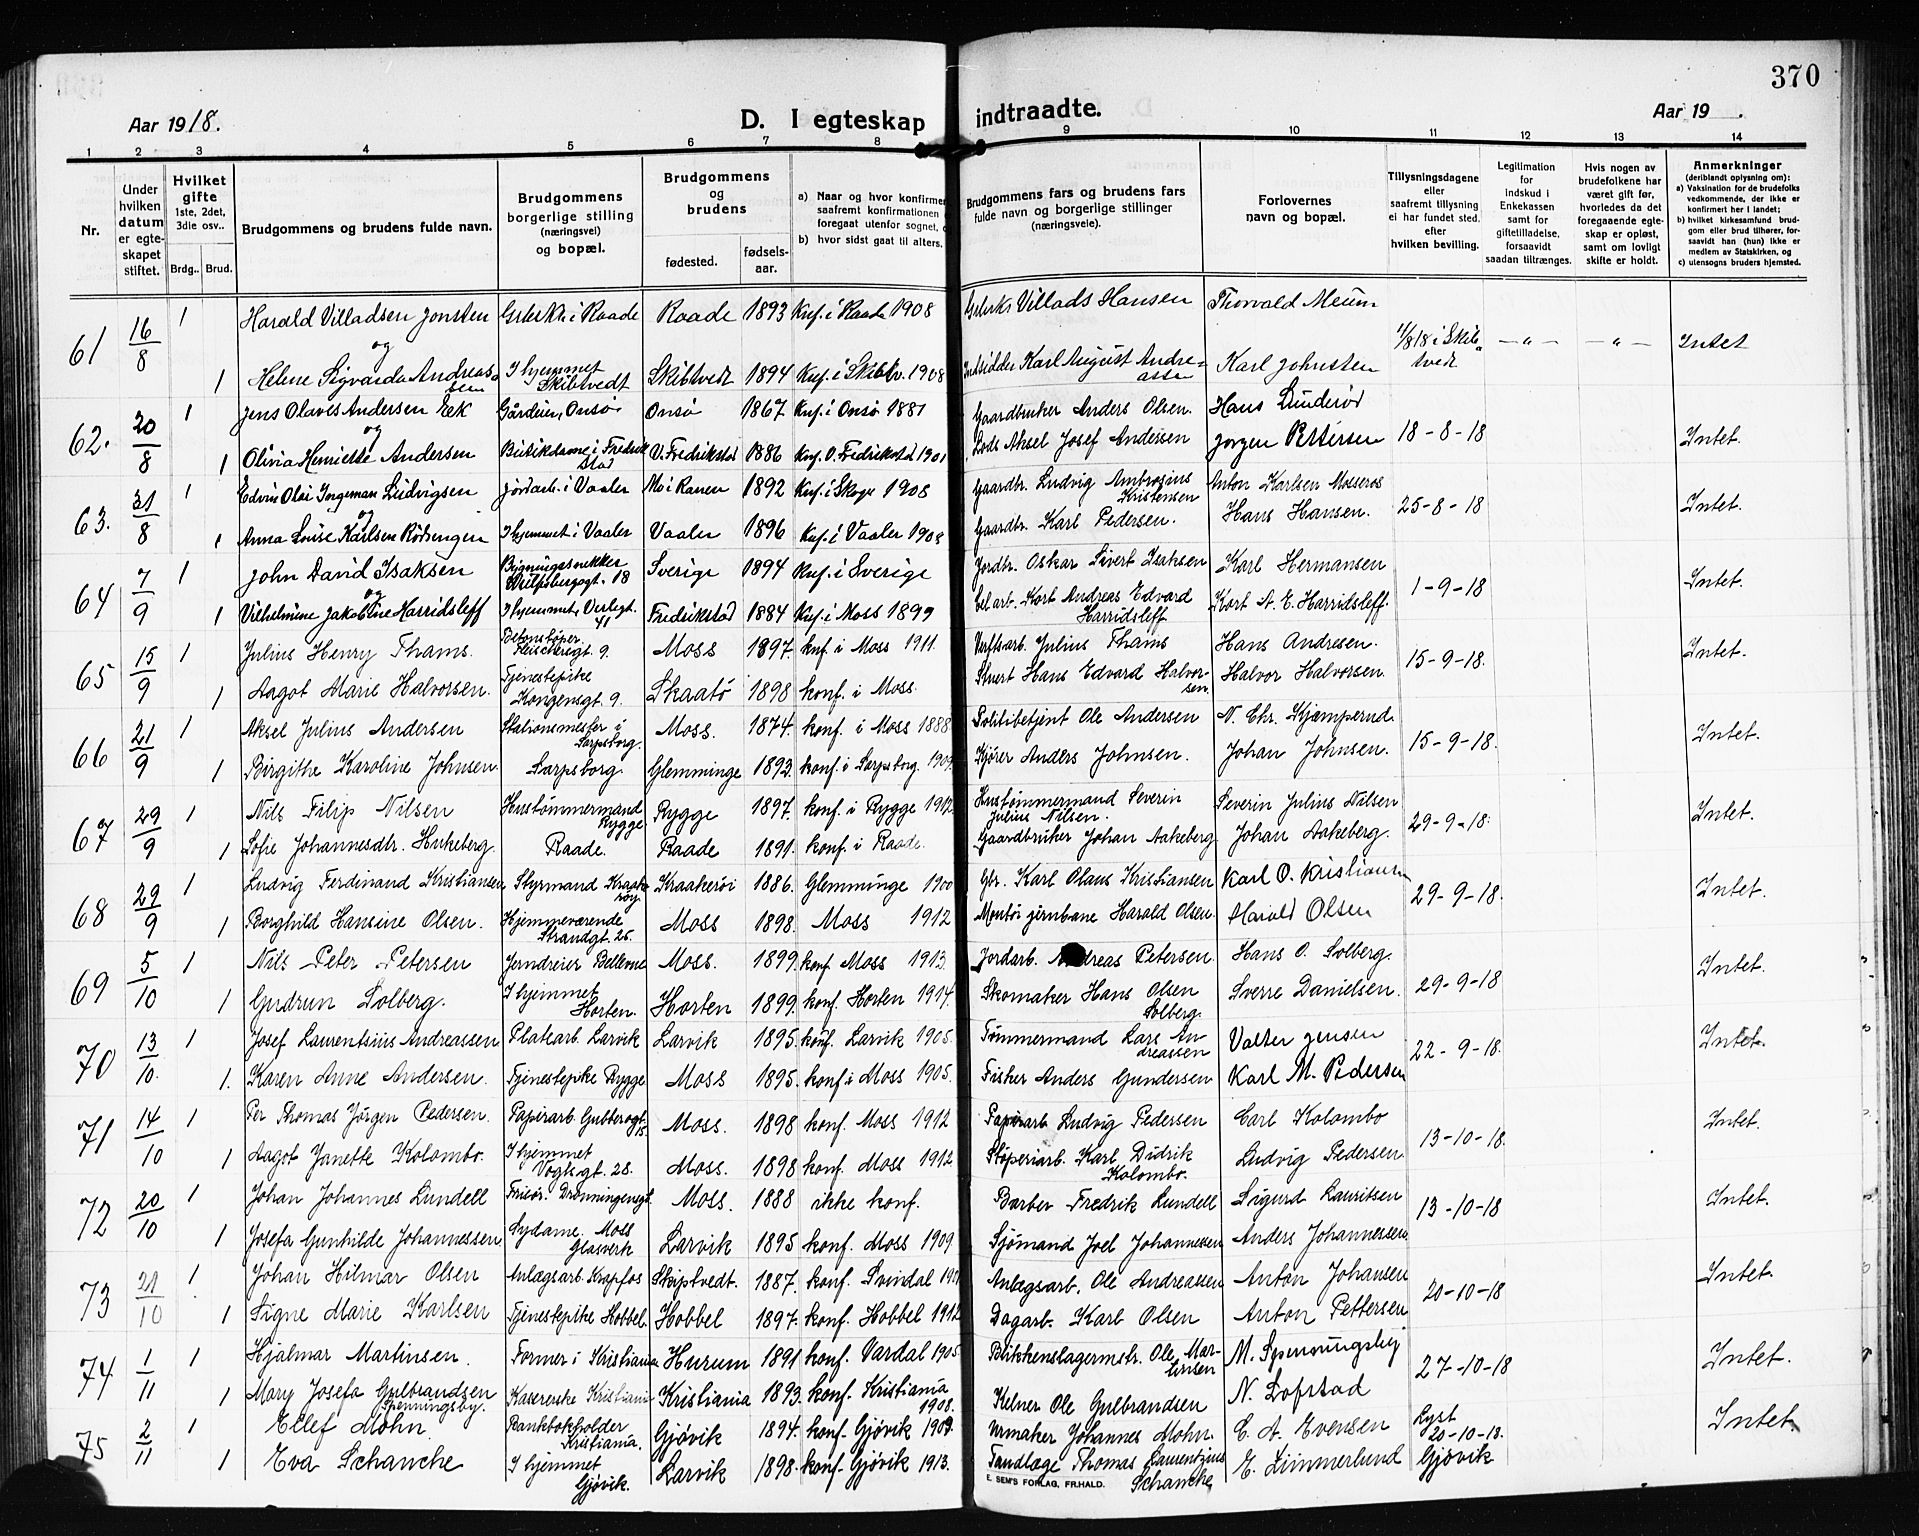 370
Aar 1918.
D. I egteskap indtraadte.
Aar 19 .
1 2 3 4 5 6 7 8 9 10 11 12 13 14
Nr.
Under hvilken datum er egteskapet stiftet.
Hvilket gifte 1ste, 2det, 3die osv..
Brdg.. Brud.
Brudgommens og brudens fulde navn.
Brudgommens borgerlige stilling (næringsvei) og bopæl.
Brudgommens og brudens
fødested. fødsels-aar.
a) Naar og hvor konfirmer
saafremt konfirmationen
foregaat utenfor sognet,
b) hvor sidst gaat til alters.
Brudgommens fars og brudens fars
fulde navn og borgerlige stillinger
(næringsveie).
Forlovernes navn og bopæl.
Tillysningsdagene eller saafremt tillysning ei har fundet sted. efter hvilken bevilling.
Legitimation for indskud i Enkekassen samt for giftetilladelse, forsaavidt saadan tiltrænges.
Hvis nogen av brudefolkene har været gift før, hvorledes da det foregaaende egteskap er opløst, samt om lovligt skifte er holdt.
Anmerkninger
(deriblandt oplysning om):
a) Vaksination for de brudefolks vedkommende, der ikke er konfirmert her i landet;
b) hvilket kirkesamfund brudgom eller brud tilhører, forsaavidt han (hun) ikke er medlem av Statskirken, og
c) utensogns bruders hjemsted.
61 16/8 1 Harald Villadsen Jonsten i Raade Raade 1893 Knf. i Raade 1908 Villads Hansen Thorvald Meum
og
1 Helene Sigvarda Andreassen I hjemmet Skibtvedt Skibtvedt 1894 Knf. i Skibtv. 1908 Karl August Andreassen Karl Johnsten 11/8 18 i Skibtvedt —"— —"— Intet
62. 20/8 1 Jens Olaves Andersen Eek Gårdeier, Onsø Onsø 1867 Knf. i Onsø 1881 Gaardbruker Anders Olsen. Hans Lunderød
og
1 Olivia Henriette Andersen Butikdame i Fredrikstad V. Fredrikstad 1886 Knf. V. Fredrikstad 1901 Lods Aksel Josef Andersen Jørgen Pettersen 18-8-18 Intet.
63. 31/8 1 Edvin Olai Ingeman Ludvigsen Jordarb. i Vaaler Mo i Ranen 1892 Knf. i Skoger 1908 Gaardbr. Ludvig Ambrosius Kristensen Anton Karlsen Mosserøs
og
1 Anna Louise Karlsen Rødsengen I hjemmet i Vaaler Vaaler 1896 Knf. i Vaaler 1908 Gaardbr. Karl Pedersen. Hans Hansen. 25-8-18 Intet.
64 7/9 1 John David Isaksen Bygningssnekker 18 Sverige 1894 Knf. i Sverige Jordbr. Oskar Sivert Isaksen Karl Hermansen
og
1 Vilhelmine Jakobine Harridsleff I hjemmet, Verlegt. 41 Fredrikstad 1884 Knf. i Moss 1899 Kort Andreas Edvard Harridsleff Kort A. E. Harridsleff. 1-9-18 Intet.
65 15/9 1 Julius Henry Thams. Betonstøper Fleischersgt. 9. Moss 1897. knf. i Moss 1911. Verftsarb. Julius Thams Hans Andresen.
1 Aagot Marie Halvorsen. Tjenestepike Kongensgt. 9. Skaatø 1898 konf. i Moss. Stuert Hans Edvard Halvorsen. Halvor Halvorsen. 15-9-18. Intet.
66 21/9 1 Aksel Julius Andersen Stationsmester i Sarpsborg. Moss. 1874. konf. i Moss 1888 Politibetjent Ole Andersen N. Chr. Kjæmperud.
1 Birgithe Karoline Johnsen. Sarpsborg. Glemminge 1893. konf. i Sarpsborg. 1909. Kjører Anders Johnsen. Johan Johnsen. 15-9-18. Intet.
67 29/9 1 Nils Filip Nilsen Hustømmermand Rygge. Rygge 1897. konf. i Rygge 1912. Hustømmermand Severin Julius Nilsen. Severin Julius Nilsen
1 Sofie Johannesdtr. Hukeberg. Raade. Raade 1891. konf. i Raade. Gaardbruker Johan Aakeberg Johan Aakeberg. 29-9-18. Intet.
68 29/9 1 Ludvig Ferdinand Kristiansen Styrmand Kraakerøy Kraakerøi 1886. Glemminge 1900 Gbr. Karl Olaus Kristiansen Karl O. Kristiansen
1 Borghild Hansine Olsen. Hjemmeværende Strandgt. 25. Moss 1898. Moss 1912 Montør jernbane Harald Olsen Harald Olsen 29-9-18. Intet.
69 5/10 1 Nils Peter Petersen Jerndreier Bellevue Moss. 1899. konf. Moss 1913. Jordarb. Andreas Petersen. Hans O. Solberg.
1 Gudrun Solberg. I hjemmet Horten. Horten 1899. konf. Horten 1914. Skomaker Hans Olsen Solberg. Sverre Danielsen. 29-9-18 Intet.
70 13/10. 1 Josef Laurentsius Andreassen Platearb. Larvik Larvik 1895. konf. Larvik 1905. Tømmermand Lars Andreassen Valter Jensen
1. Karen Anne Andersen. Tjenestepike Rygge Moss 1895. konf. i Moss 1905. Fisker Anders Gundersen Karl M. Pedersen 22-9-18. Intet.
71 14/10 1 Per Thomas Jørgen Pedersen. Papirarb. Gubberogt. 15. Moss. 1898 konf. Moss 1912 Papirarb Ludvig Pedersen Carl Kolombo
1 Aagot Janette Kolombo. I hjemmet Vogtsgt. 28. Moss. 1898 konf. Moss 1912 Støperiarb. Karl Didrik Kolombo. Ludvig Pedersen 13-10-18. Intet.
72 20/10 1 Johan Johannes Lundell Frisør. Dronningensgt. Moss. 1888 ikke konf. Barber Fredrik Lundell Sigurd Lauritsen
1 Josefa Gunhilde Johannessen Sydame, Moss Glasverk Larvik 1895 konf. Moss 1909 Sjømand Joel Johannessen Anders Johannessen 13-10-18 Intet.
73 21/10 1 Johan Hilmar Olsen Anlægsarb. Krapfos Skiptvedt. 1887. konf. Svindal Anlægsarb. Ole Andreassen Anton Johansen
1 Signe Marie Karlsen Tjenestepike Hobbel. Hobbel 1897. konf. Hobbel 1912 Dagarb. Karl Olsen Anton Pettersen 20-10-18 Intet.
74 1/11 1 Hjalmar Martinsen. Former i Kristiania Hurum 1891 konf. Vardal 1905. Blikkenslagermstr. Ole Martinsen M. Spenningsby
1 Mary Josefa Gulbrandsen Spenningsby. Kasererske Kristiania Kristiania 1893. konf. Kristiania 1908. Kelner Ole Gulbrandsen N. Lofstad 27-10-18 Intet.
75 2/11 1 Ellef Mohn. Bankbokholder Kristiania. Gjøvik 1894. konf. Gjøvik 1909. Urmaker Johannes Mohn. C. A. Evensen
1 Eva Schanche I hjemmet Gjøvik. Larvik 1898. konf. Gjøvik 1913. Tandlæge Thomas Laurentzius Schanche E. Zimmerlund Lyst 20-10-18. Gjøvik Intet.
E. SEM'S FORLAG, FR.HALD.